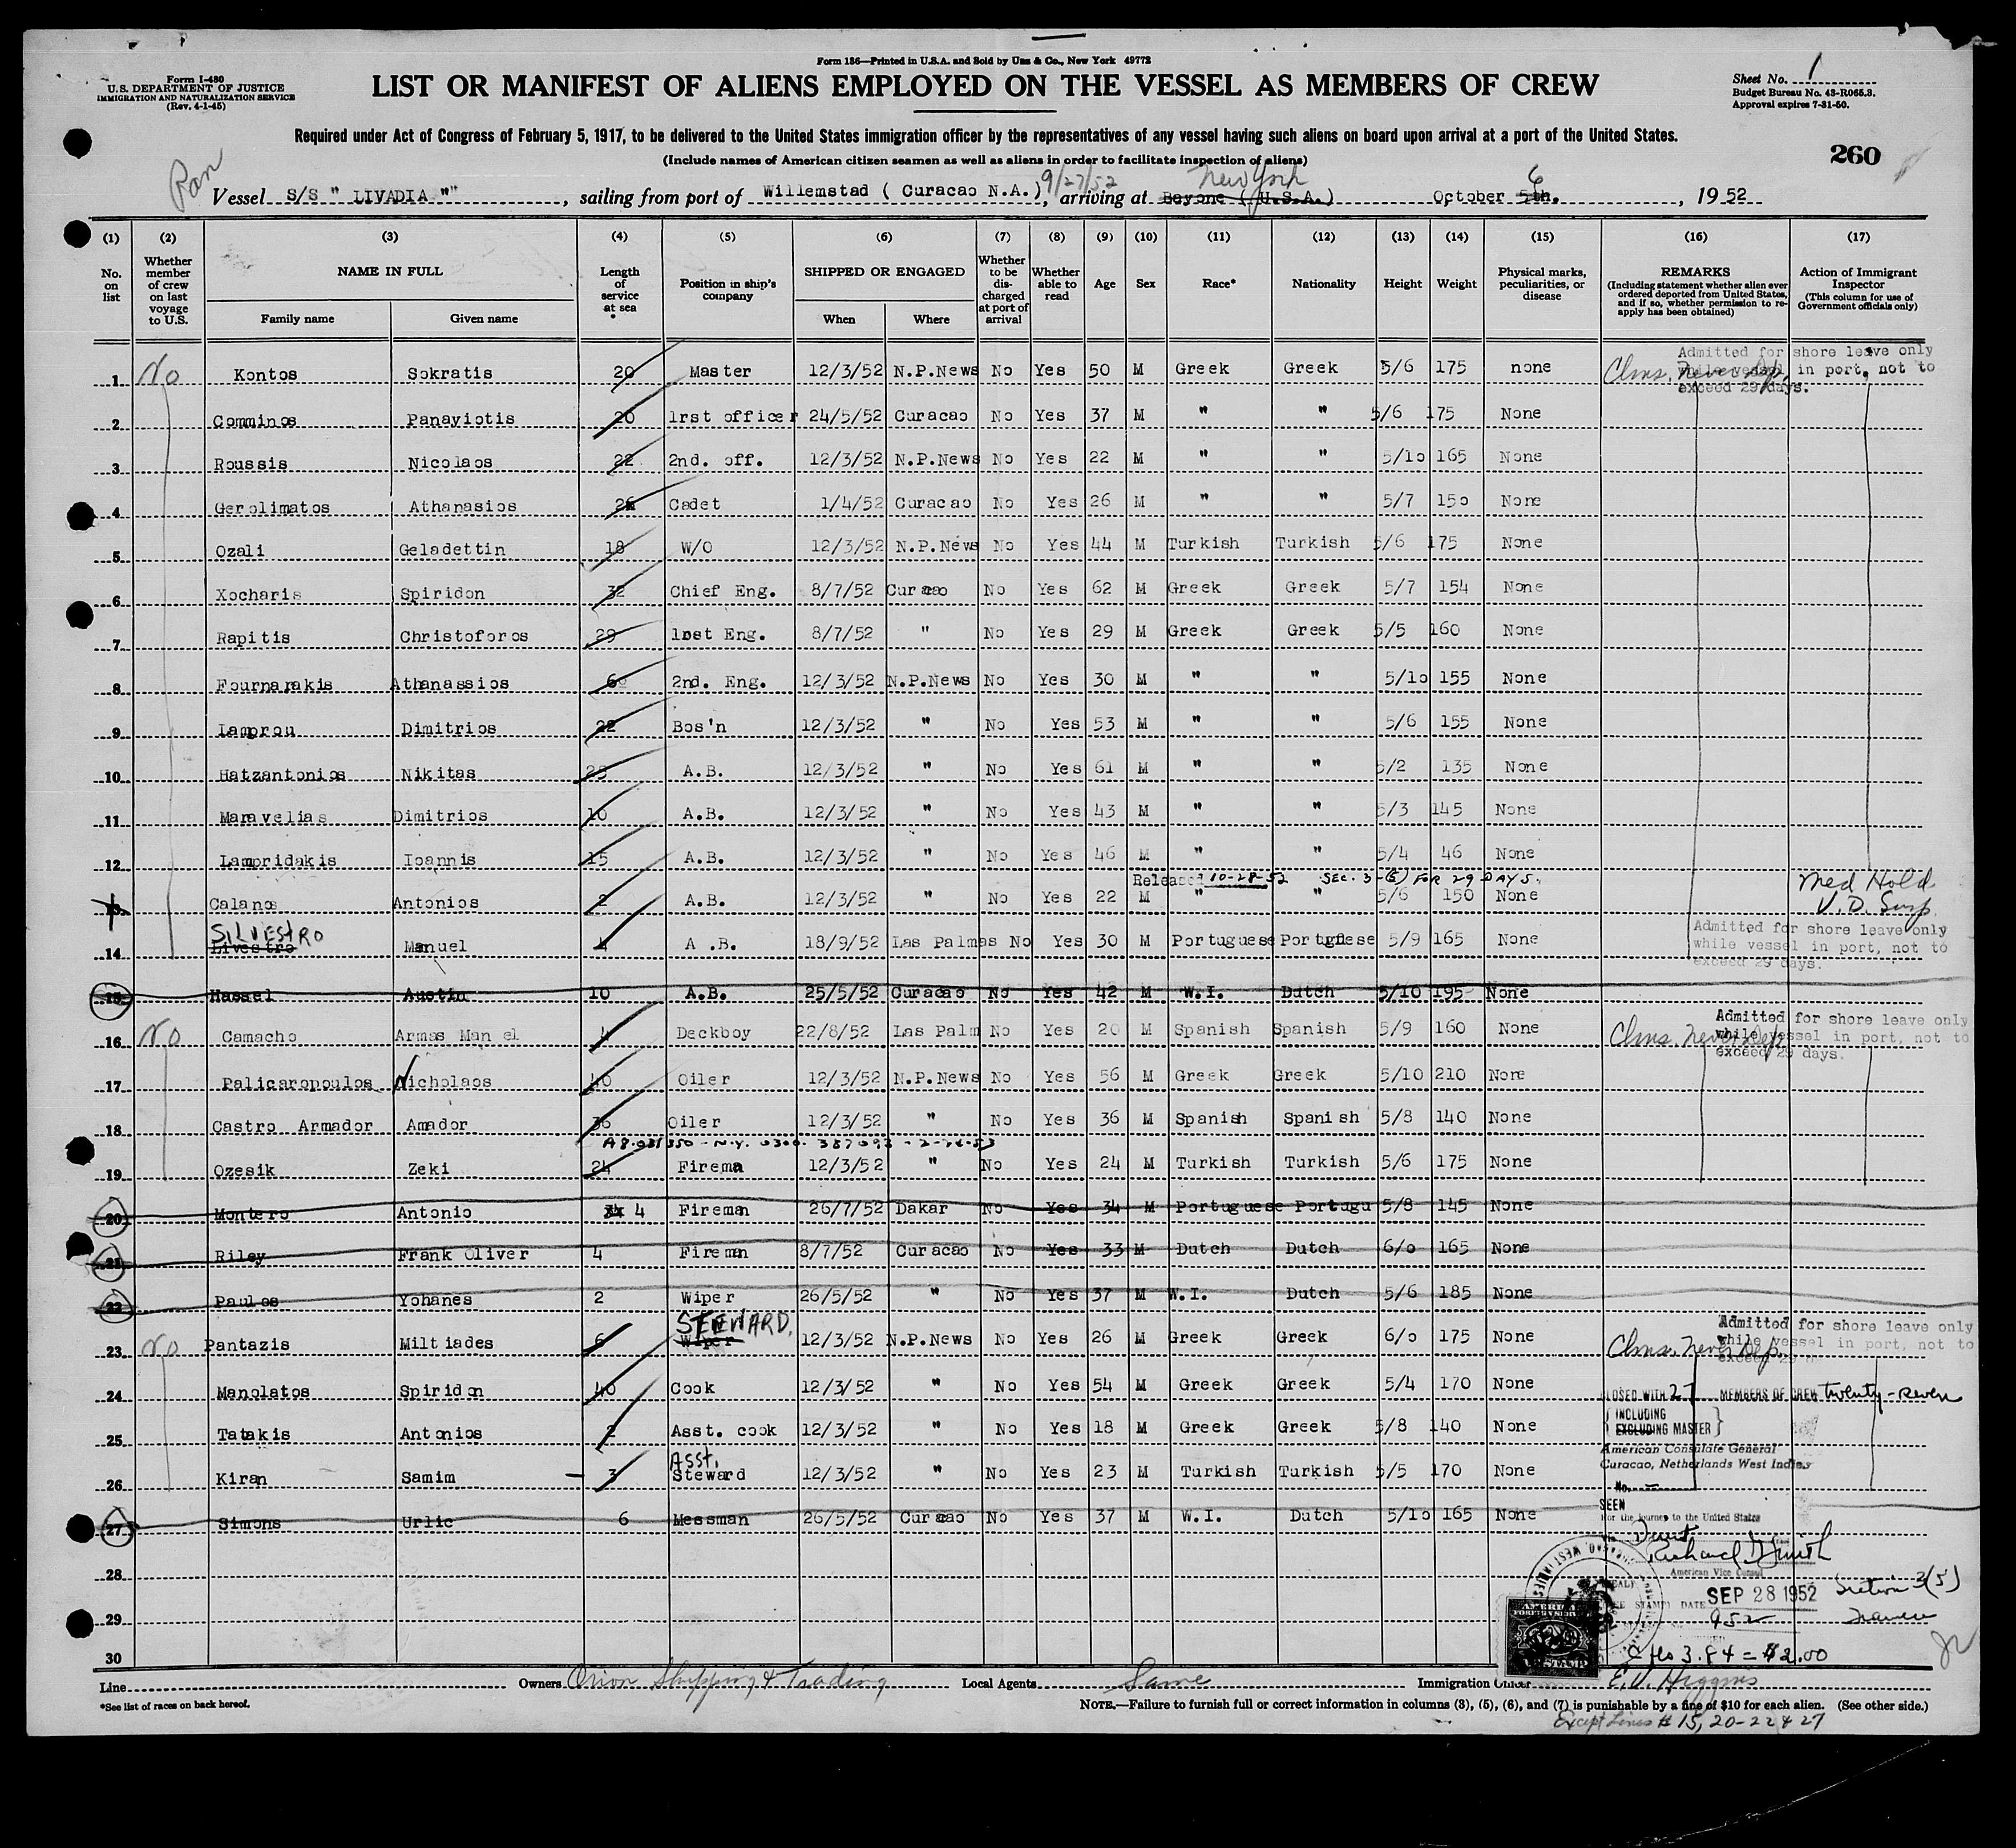 Form 136—Printed in U.S.A. and Sold by Unz & Co., New York 49772
Form I-480
U.S. DEPARTMENT OF JUSTICE
IMMIGRATION AND NATURALIZATION SERVICE
(Rev. 4-1-45)
LIST OR MANIFEST OF ALIENS EMPLOYED ON THE VESSEL AS MEMBERS OF CREW
Sheet No. 1
Budget Bureau No. 43-R065.3.
Approval expires 7-31-50.
Required under Act of Congress of February 5, 1917, to be delivered to the United States immigration officer by the representatives of any vessel having such aliens on board upon arrival at a port of the United States.
(Include names of American citizen seamen as well as aliens in order to facilitate inspection of aliens)
260
Pan
9/27/52 New York 6
Vessel S/S " LIVADIA "", sailing from port of Willemstad ( Curacao N.A.), arriving at Bayone ( U.S.A.) October 5th., 1952
(1) (2) (3) (4) (5) (6) (7) (8) (9) (10) (11) (12) (13) (14) (15) (16) (17)
No. on list
Whether member of crew on last voyage to U.S.
NAME IN FULL
Family name Given name
Length of service at sea *
Position in ship's company
SHIPPED OR ENGAGED
When Where
Whether to be discharged at port of arrival
Whether able to read
Age Sex Race* Nationality Height Weight
Physical marks, peculiarities, or disease
REMARKS
(Including statement whether alien ever ordered deported from United States, and if so, whether permission to re-apply has been obtained)
Action of Immigrant Inspector
(This column for use of Government officials only)
Admitted for shore leave only
while vessel in port, not to
exceed 29 days.
1 No Kontos Sokratis 20 Master 12/3/52 N.P.News No Yes 50 M Greek Greek 5/6 175 none Clms. never dep.
2 Comminos Panayiotis 20 1rst officer 24/5/52 Curacao No Yes 37 M " " 5/6 175 None
3 Roussis Nicolaos 22 2nd. off. 12/3/52 N.P.News No Yes 22 M " " 5/10 165 None
4 Gerolimatos Athanasios 26 Cadet 1/4/52 Curacao No Yes 26 M " " 5/7 150 None
5 Ozali Geladettin 18 W/O 12/3/52 N.P.News No Yes 44 M Turkish Turkish 5/6 175 None
6 Xocharis Spiridon 32 Chief Eng. 8/7/52 Curacao No Yes 62 M Greek Greek 5/7 154 None
7 Rapitis Christoforos 29 1rst Eng. 8/7/52 " No Yes 29 M Greek Greek 5/5 160 None
8 Fournarakis Athanassios 6 2nd. Eng. 12/3/52 N.P.News No Yes 30 M " " 5/10 155 None
9 Lamprou Dimitrios 22 Bos'n 12/3/52 " No Yes 53 M " " 5/6 155 None
10 Hatzantonios Nikitas 25 A.B. 12/3/52 " No Yes 61 M " " 5/2 135 None
11 Maravelias Dimitrios 10 A.B. 12/3/52 " No Yes 43 M " " 5/3 145 None
12 Lampridakis Ioannis 15 A.B. 12/3/52 " No Yes 46 M " " 5/4 46 None
Released 10-28-52 SEC. 3-(5) FOR 29 DAYS.
13 Calanos Antonios 2 A.B. 12/3/52 " No Yes 22 M " " 5/6 150 None Med Hold V.D. Susp.
SILVESTRO
14 Livestro Manuel 4 A .B. 18/9/52 Las Palmas No Yes 30 M Portuguese Portuguese 5/9 165 None
Admitted for shore leave only
while vessel in port, not to
exceed 29 days.
15 Hassel Austin 10 A.B. 25/5/52 Curacao No Yes 42 M W.I. Dutch 5/10 195 None
Admitted for shore leave only
while vessel in port, not to
exceed 29 days.
16 No Camacho Armas Man el 4 Deckboy 22/8/52 Las Palm No Yes 20 M Spanish Spanish 5/9 160 None Clms. never dep
17 Palicaropoulos Nicholaos 40 Oiler 12/3/52 N.P.News No Yes 56 M Greek Greek 5/10 210 None
18 Castro Armador Amador 36 Oiler 12/3/52 " No Yes 36 M Spanish Spanish 5/8 140 None
19 Ozesik Zeki 24 Firema 12/3/52 " No Yes 24 M Turkish Turkish 5/6 175 None
20 Montero Antonio 4 Fireman 26/7/52 Dakar No Yes 34 M Portuguese Portugu 5/8 145 None
21 Riley Frank Oliver 4 Fireman 8/7/52 Curacao No Yes 33 M Dutch Dutch 6/0 165 None
22 Paulos Yohanes 2 Wiper 26/5/52 " No Yes 37 M W.I. Dutch 5/6 185 None
STEWARD.
Admitted for shore leave only
while vessel in port, not to
23 No Pantazis Miltiades 6 Wiper 12/3/52 N.P.News No Yes 26 M Greek Greek 6/0 175 None Clms. never dep.
24 Manolatos Spiridon 40 Cook 12/3/52 " No Yes 54 M Greek Greek 5/4 170 None
CLOSED WITH 27 MEMBERS OF CREW twenty-seven
25 Tatakis Antonios 2 Asst. cook 12/3/52 " No Yes 18 M Greek Greek 5/8 140 None
INCLUDING
EXCLUDING MASTER
American Consulate General
Curacao, Netherlands West Indies
ASST.
26 Kiran Samim 3 Steward 12/3/52 " No Yes 23 M Turkish Turkish 5/5 170 None
No.
27 Simons Urlic 6 Messman 26/5/52 Curacao No Yes 37 M W.I. Dutch 5/10 165 None
SEEN
For the journey to the United States
Richard Smith
American Vice Consul
28
DATE SEP 28 1952 Section 3(5)
952
29
30
3.84 = $2.00
Line Owners Orion Shipping & Trading Local Agents Same Immigration Officer E.V. Higgins
*See list of races on back hereof.
NOTE.—Failure to furnish full or correct information in columns (3), (5), (6), and (7) is punishable by a fine of $10 for each alien. (See other side.)
Except Lines # 15, 20-22 & 27